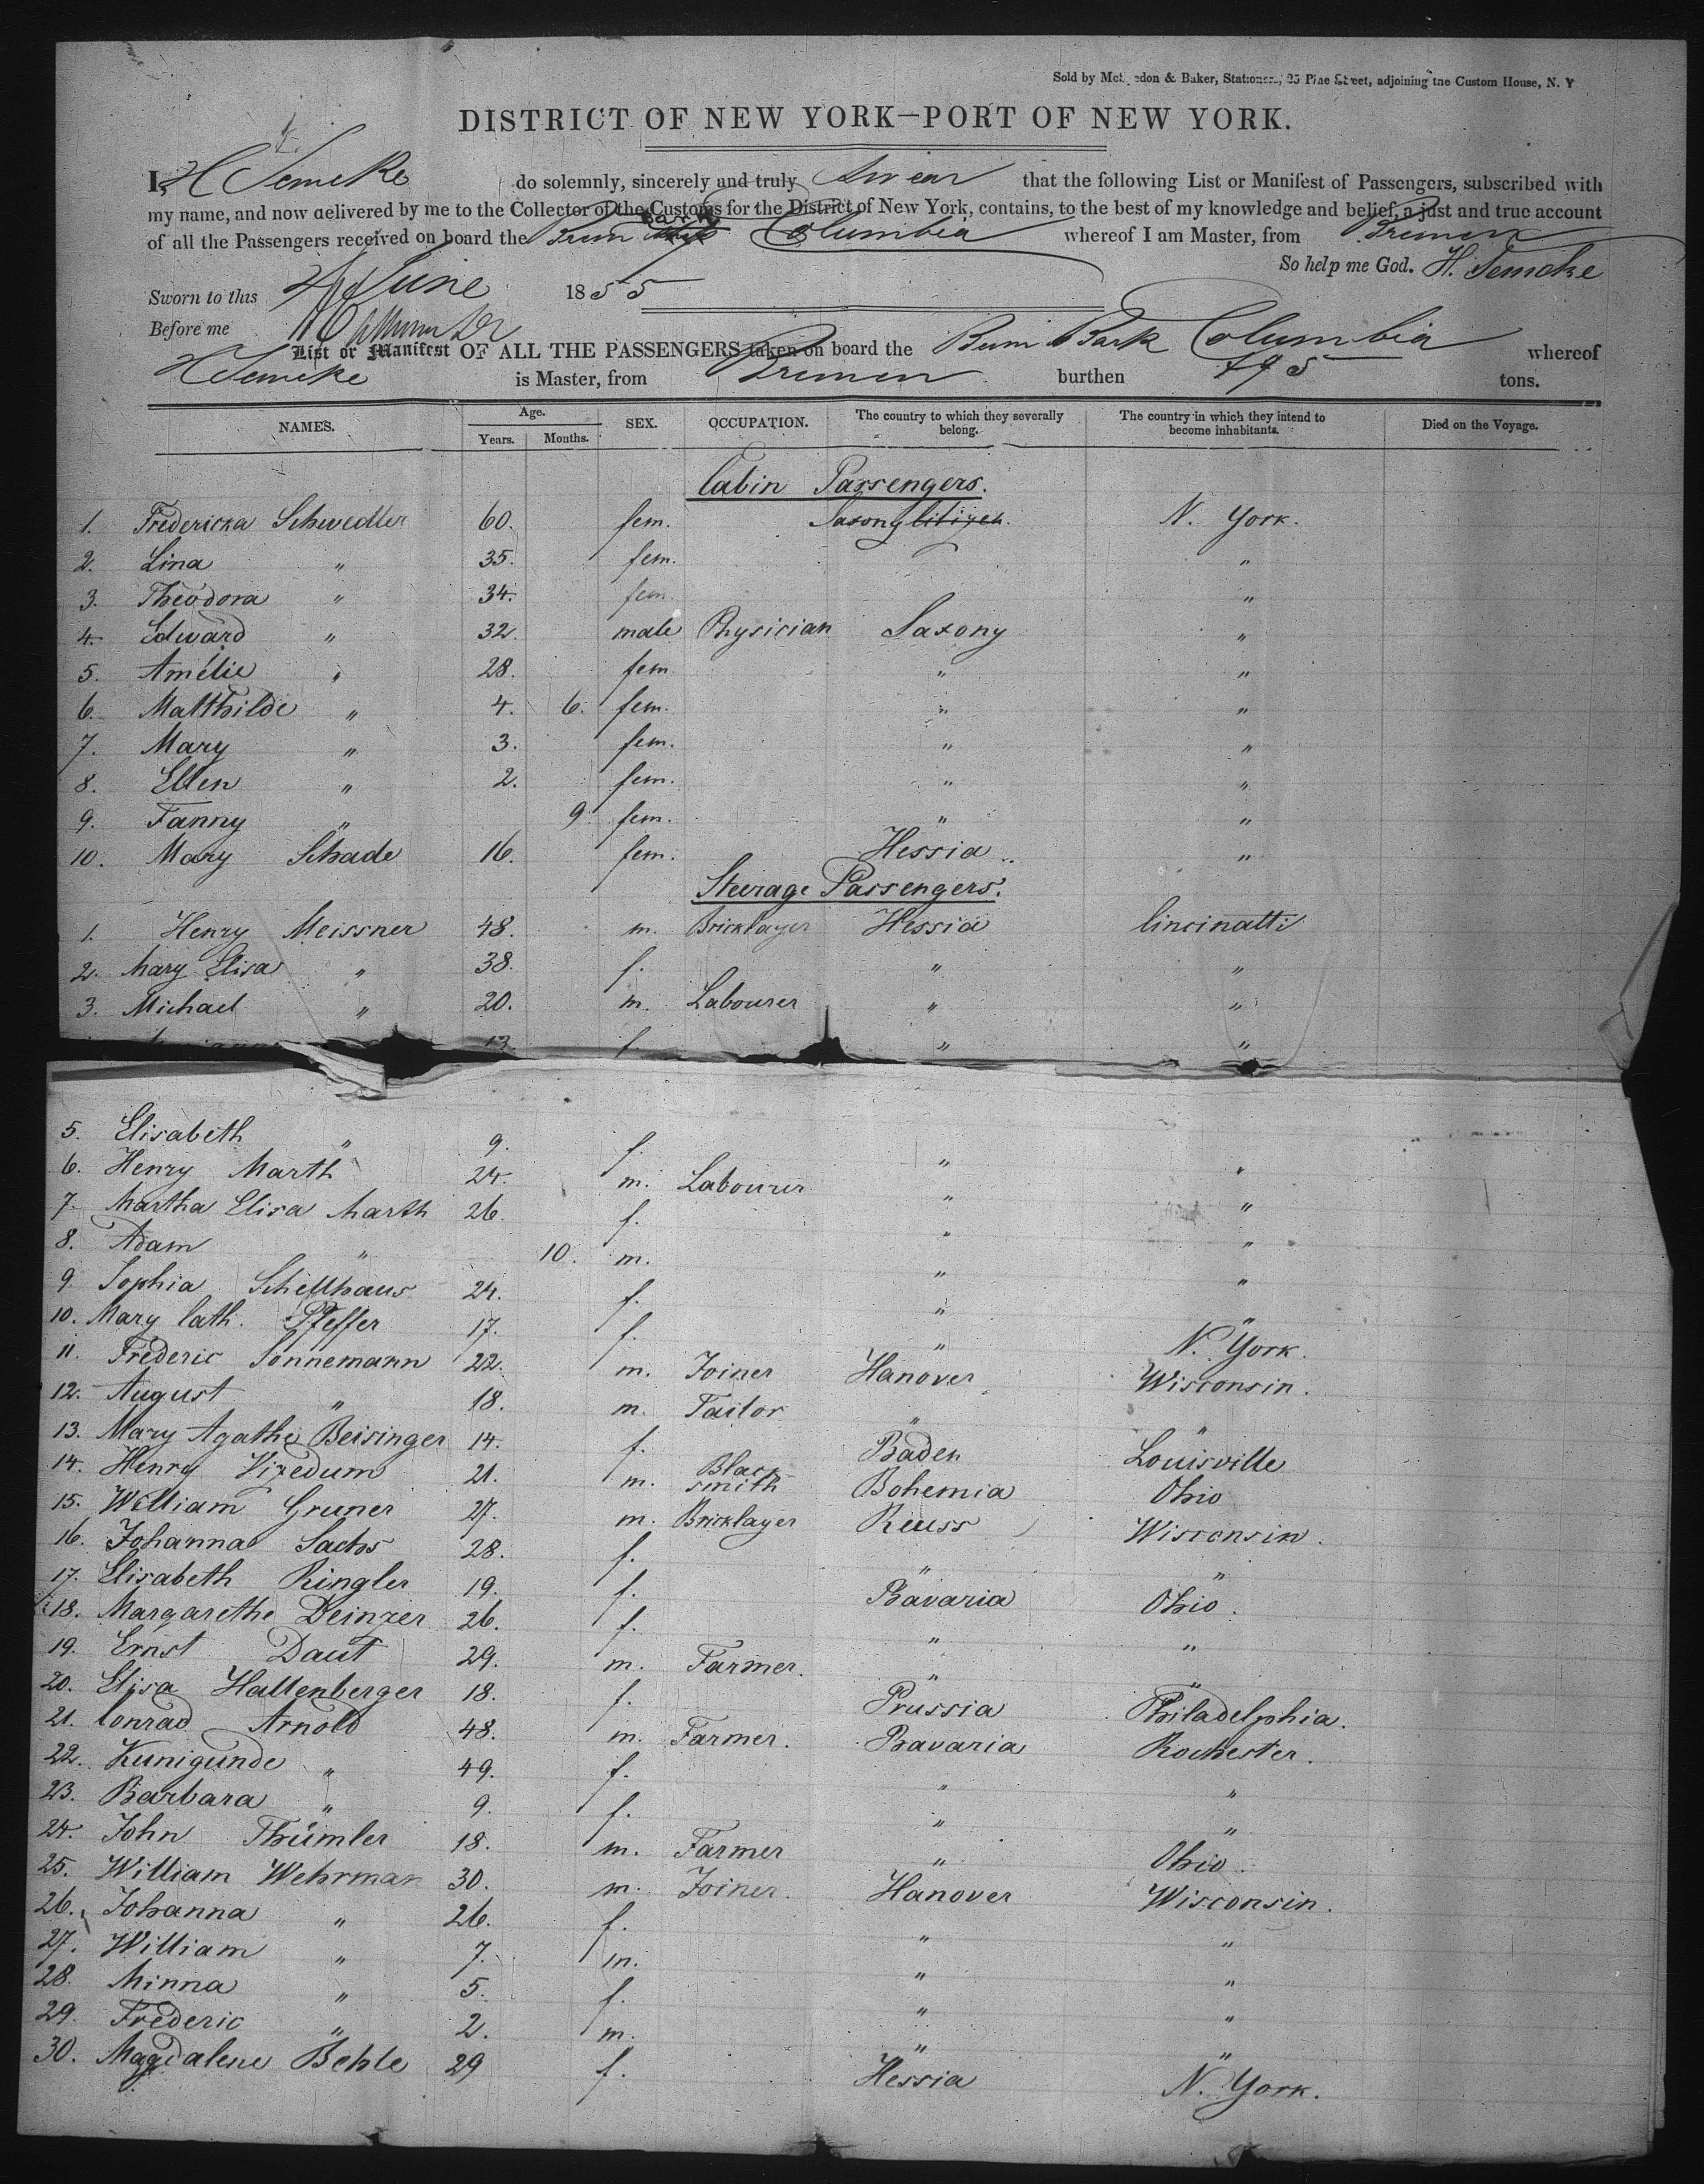 Sold by & Baker, Stationers, 25 Pine Street, adjoining the Custom House, N. Y
DISTRICT OF NEW YORK—PORT OF NEW YORK.
I, H Semcke do solemnly, sincerely and truly swear that the following List or Manifest of Passengers, subscribed with
my name, and now delivered by me to the Collector of the Customs for the District of New York, contains, to the best of my knowledge and belief, a just and true account
of all the Passengers received on board the Brem Bark Columbia whereof I am Master, from Bremen
So help me God. H. Semcke
Sworn to this 4 June 1855
Before me
List or Manifest OF ALL THE PASSENGERS taken on board the Brem Bark Columbia whereof
H Semcke is Master, from Bremen burthen 495 tons.
NAMES. Age. Years. Months. SEX. OCCUPATION. The country to which they severally belong. The country in which they intend to become inhabitants. Died on the Voyage.
Cabin Passengers.
1. Fredericka Schwedler 60. fem. Saxony citizen. N. York.
2. Lina " 35. fem. "
3. Theodora " 34. fem. "
4. Edward " 32. male Physician Saxony "
5. Amélie " 28. fem. " "
6. Matthilde " 4. 6. fem. " "
7. Mary " 3. fem. " "
8. Ellen " 2. fem. " "
9. Fanny " 9 fem. " "
10. Mary Schade 16. fem. Hessia "
Steerage Passengers.
1. Henry Meissner 48. m. Bricklayer Hessia Cincinatti
2. Mary Elisa " 38. f. " "
3. Michael " 20. m. Labourer " "
13. f. " "
5. Elisabeth " 9. f. " "
6. Henry Marth 24. m. Labourer " "
7. Martha Elisa Marth 26. f. " "
8. Adam " 10. m. " "
9. Sophia Schellhaus 24. f. " "
10. Mary Cath. Pfeffer 17. f. " N. York.
11. Frederic Sonnemann 22. m. Joiner Hanover Wisconsin.
12. August " 18. m. Tailor " "
13. Mary Agathe Beisinger 14. f. Baden Louisville
14. Henry Vizedum 21. m. Black-smith Bohemia Ohio
15. William Gruner 27. m. Bricklayer Reuss Wisconsin.
16. Johanna Sachs 28. f. " "
17. Elisabeth Ringler 19. f. Bavaria Ohio.
18. Margarethe Deinzer 26. f. " "
19. Ernst Daut 29. m. Farmer. " "
20. Elisa Hallenberger 18. f. Prussia Philadelphia.
21. Conrad Arnold 48. m. Farmer. Bavaria Rochester.
22. Kunigunde " 49. f. " "
23. Barbara " 9. f. " "
24. John Thümler 18. m. Farmer " Ohio.
25. William Wehrman 30. m. Joiner. Hanover Wisconsin.
26. Johanna " 26. f. " "
27. William " 7. m. " "
28. Minna " 5. f. " "
29. Frederic " 2. m. " "
30. Magdalene Behle 29 f. Hessia N. York.